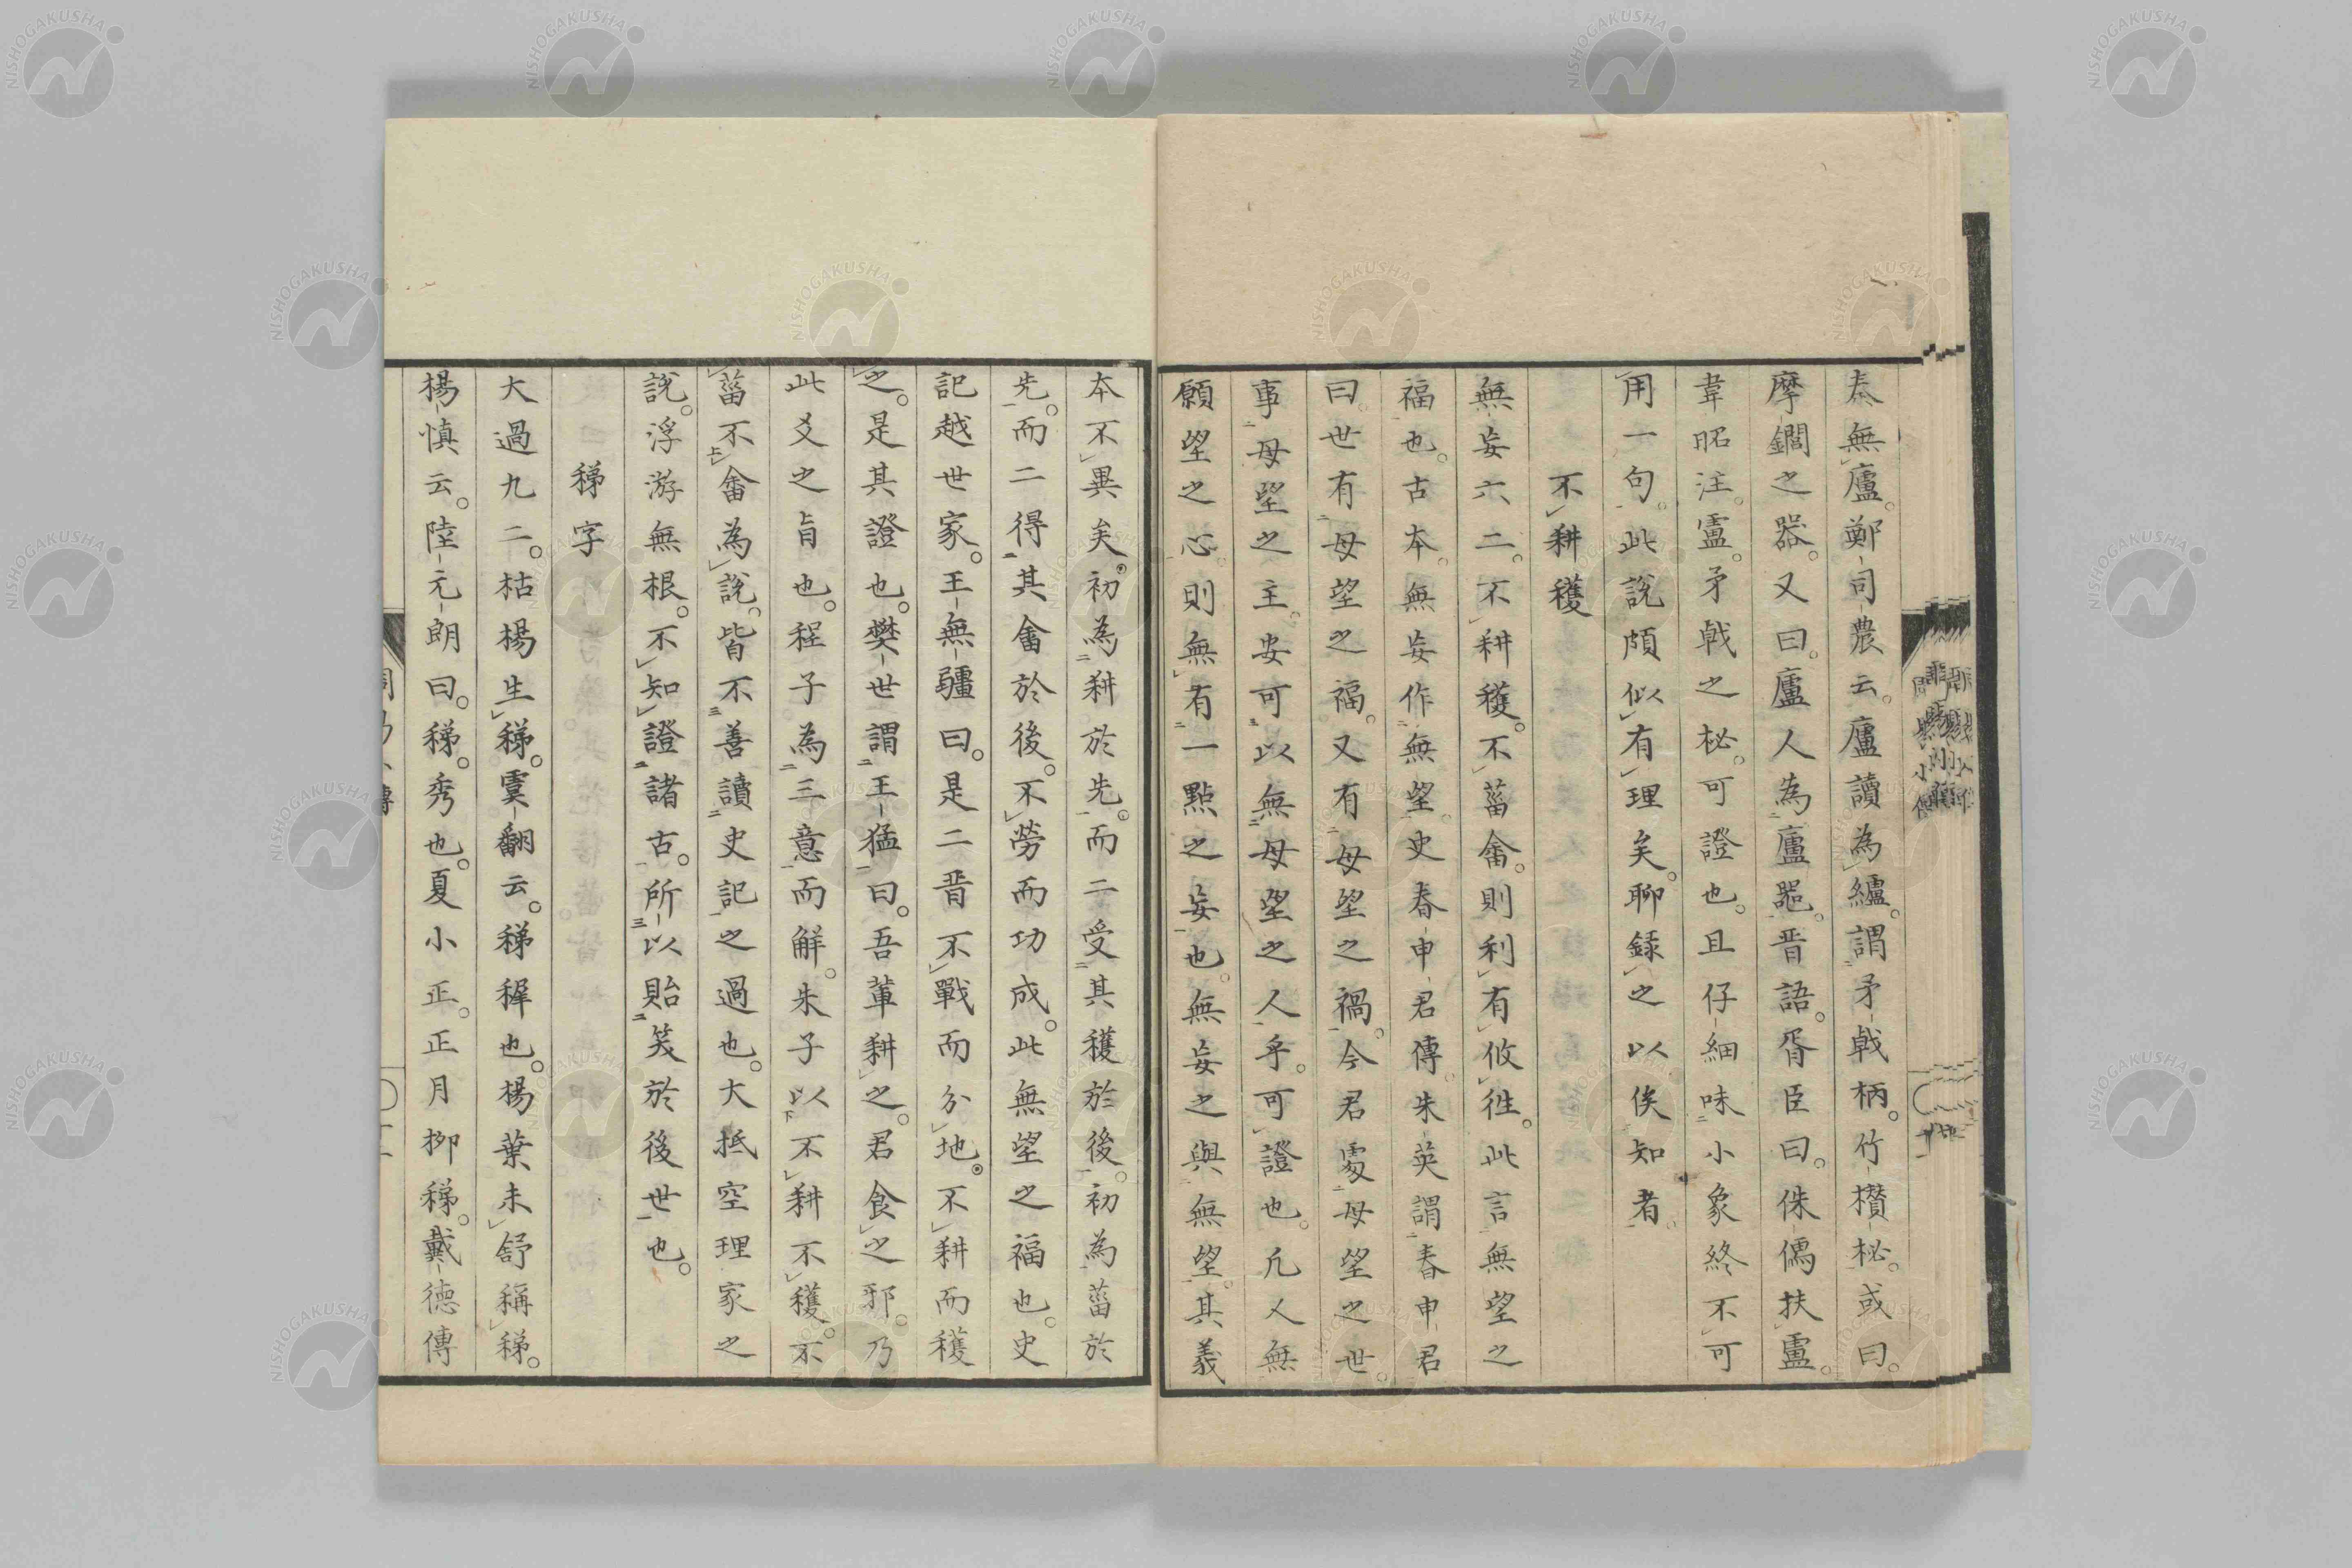 秦無廬。鄭司農云。廬讀為纑。謂矛戟柄。竹欑柲。或曰。
摩鐗之器。又曰。廬人為廬器。晋語。胥臣曰。侏儒扶盧。
韋昭注。盧。矛戟之柲。可證也。且仔細味小象終不可
用一句。此說頗似有理矣。聊録之以俟知者。
不耕穫
無妄六二。不耕穫。不菑畬。則利有攸往。此言無望之
福也。古本。無妄作無望。史春申君傳。朱英謂春申君
曰。世有毋望之福。又有毋望之禍。今君處毋望之世。
事毋望之主。安可以無毋望之人乎。可證也。凡人無
願望之心。則無有一點之妄也。無妄之與無望。其義
本不異矣。初為耕於先。而二受其穫於後。初為菑於
先。而二得其畬於後。不勞而功成。此無望之福也。史
記越世家。王無疆曰。是二晋不戰而分地。不耕而穫
之。是其證也。樊世謂王猛曰。吾輩耕之。君食之邪。乃
此爻之旨也。程子為三意而解。朱子以不耕不穫不
菑不畬為說。皆不善讀史記之過也。大抵空理家之
說。浮游無根。不知證諸古。所以貽笑於後世也。
稊字
大過九二。枯楊生稊。虞翻云。稊穉也。楊葉未舒稱稊。
楊慎云。陸元朗曰。稊。秀也。夏小正。正月柳稊。戴德傳